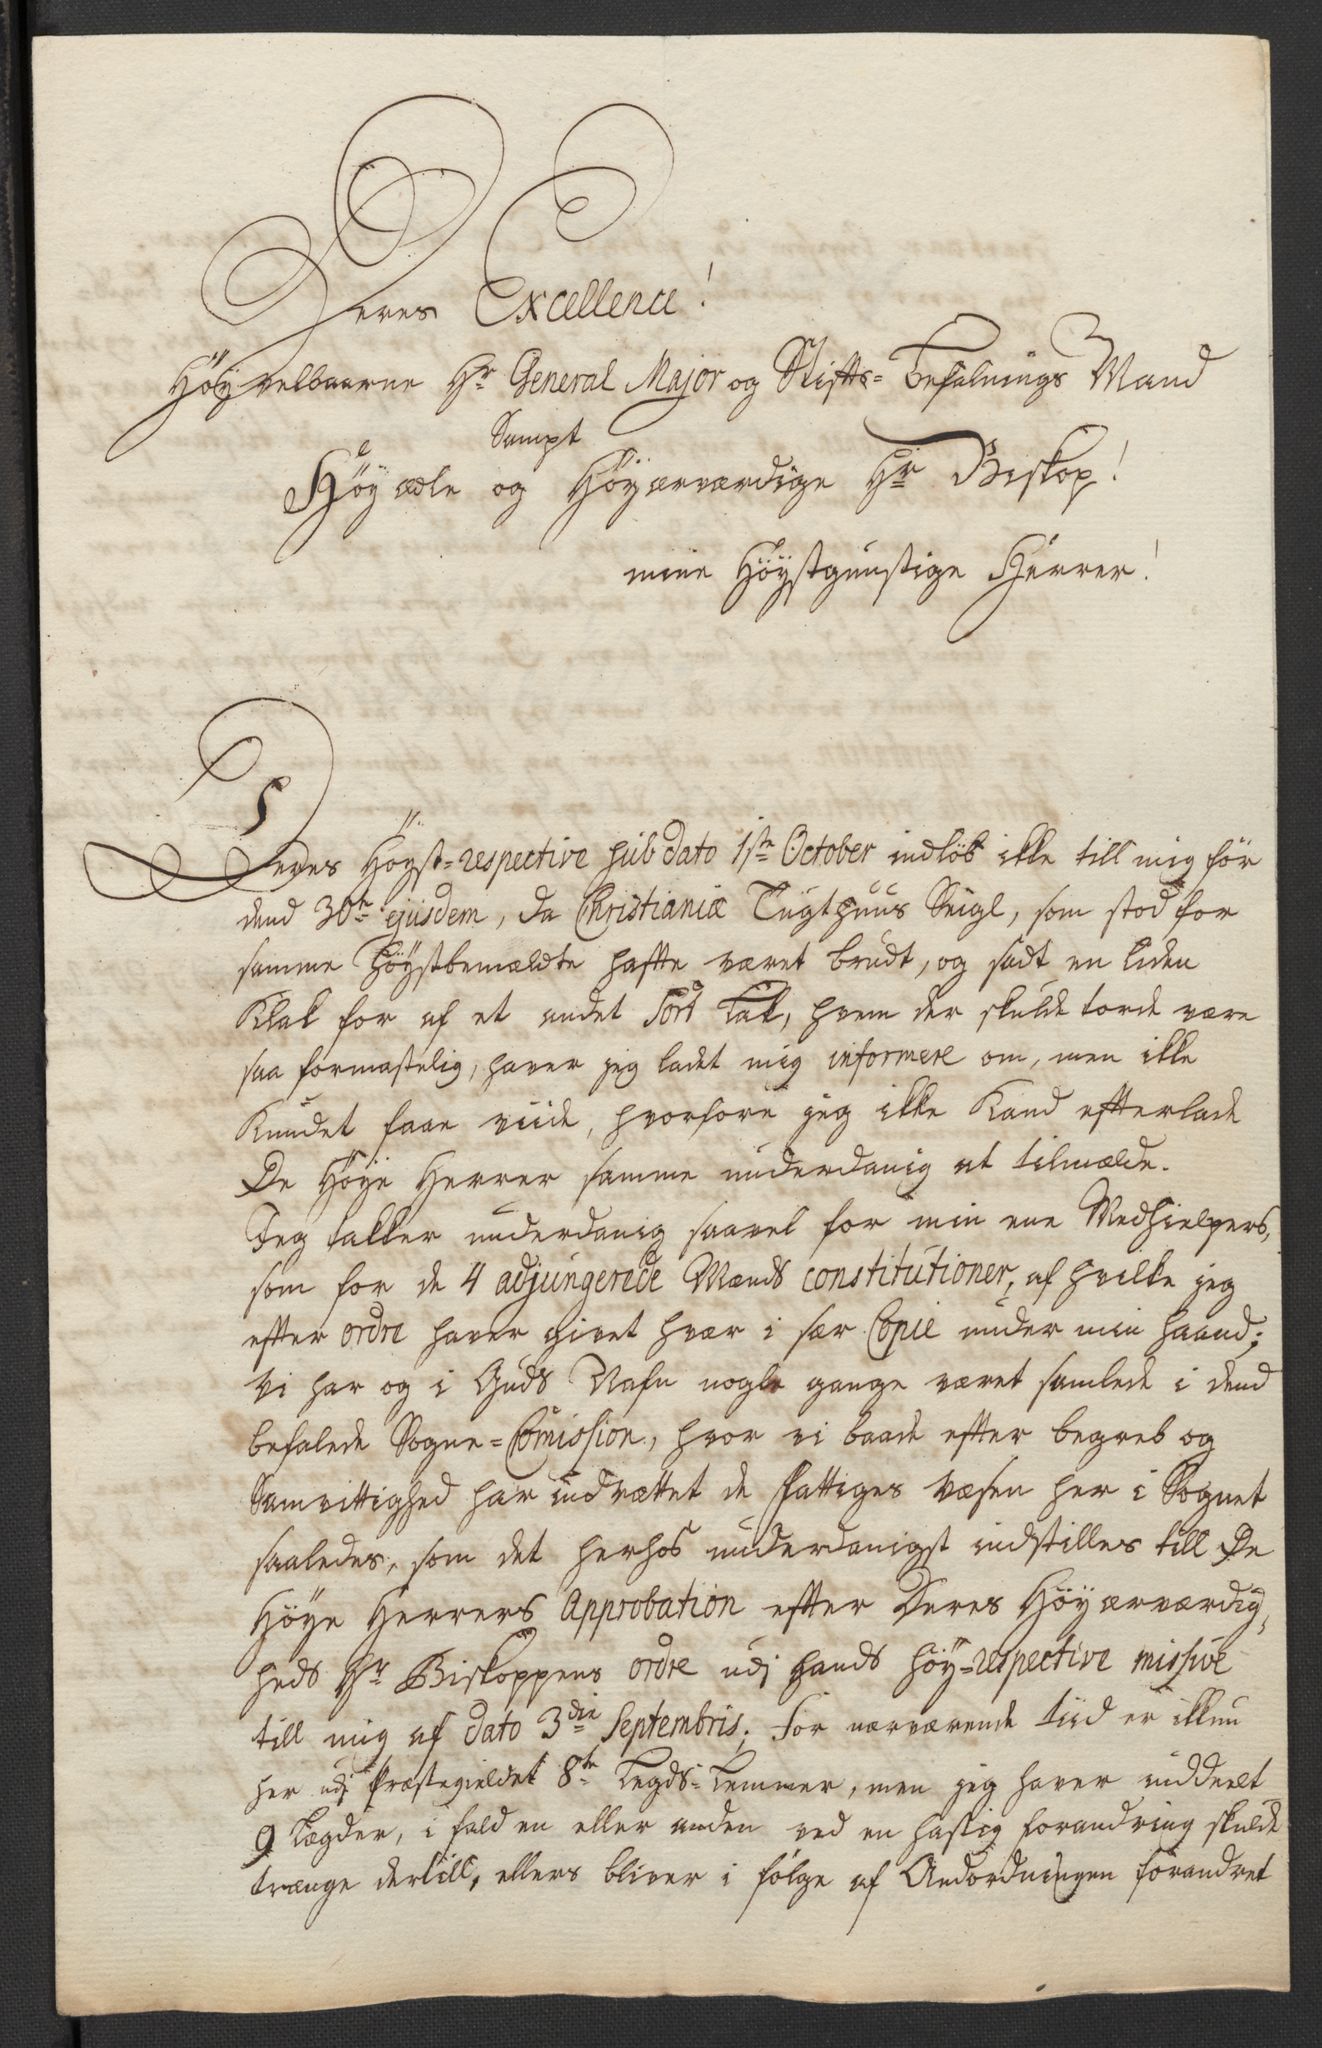 Deres Excellence!
Höÿvelbaarne Hr General Major og Stifts-Befalnings Mand
Sampt
Höÿædle og Höÿærværdige Hr Biskop!
mine Höÿstgunstige Herrer!
Deres Höyst-respective sub dato 1ste October indlöb ikke till mig för
dend 30te ejusdem, da Christianiæ Tugthuus Seigl, som stod for
samme Höÿstbemældte hafte været brudt, og sadt en liden
Klak for af et andet sort Lak, hvem der skulde torde være
saa formastelig, haver jeg ladet mig informere om, men ikke
Kundet faae viide, hvorfore jeg ikke Kand efterlade
De Höÿe Herrer samme underdanig at tilmælde.
Jeg takker underdanig saavel for min ene Medhielpers,
som for de 4 adjungerede Mænds constitutioner, af hvilke jeg
efter ordre haver givet hvær i sær Copie under min haand;
Vi har og i Guds Nafn nogle gange været samlede i dend
befalede Sogne-Comission, hvor vi baade efter begreb og
Samvittighed har indrættet de fattiges væsen her i Sognet
saaledes, som det herhos underdanigst indstilles till De
Höye Herrers Approbation efter Deres Höÿærværdig,
heds Hr Biskoppens ordre udj hands höÿ-respective missive
till mig af dato 3die Septembris; For nærværende tiid er ikkun
her udj Præstegieldet 8te Legds-Lemmer, men jeg haver inddeelt
9 Lægder, i fald en eller anden ved en hastig forandring skulde
trænge dertill, ellers bliver i fölge af Anordningen forandret